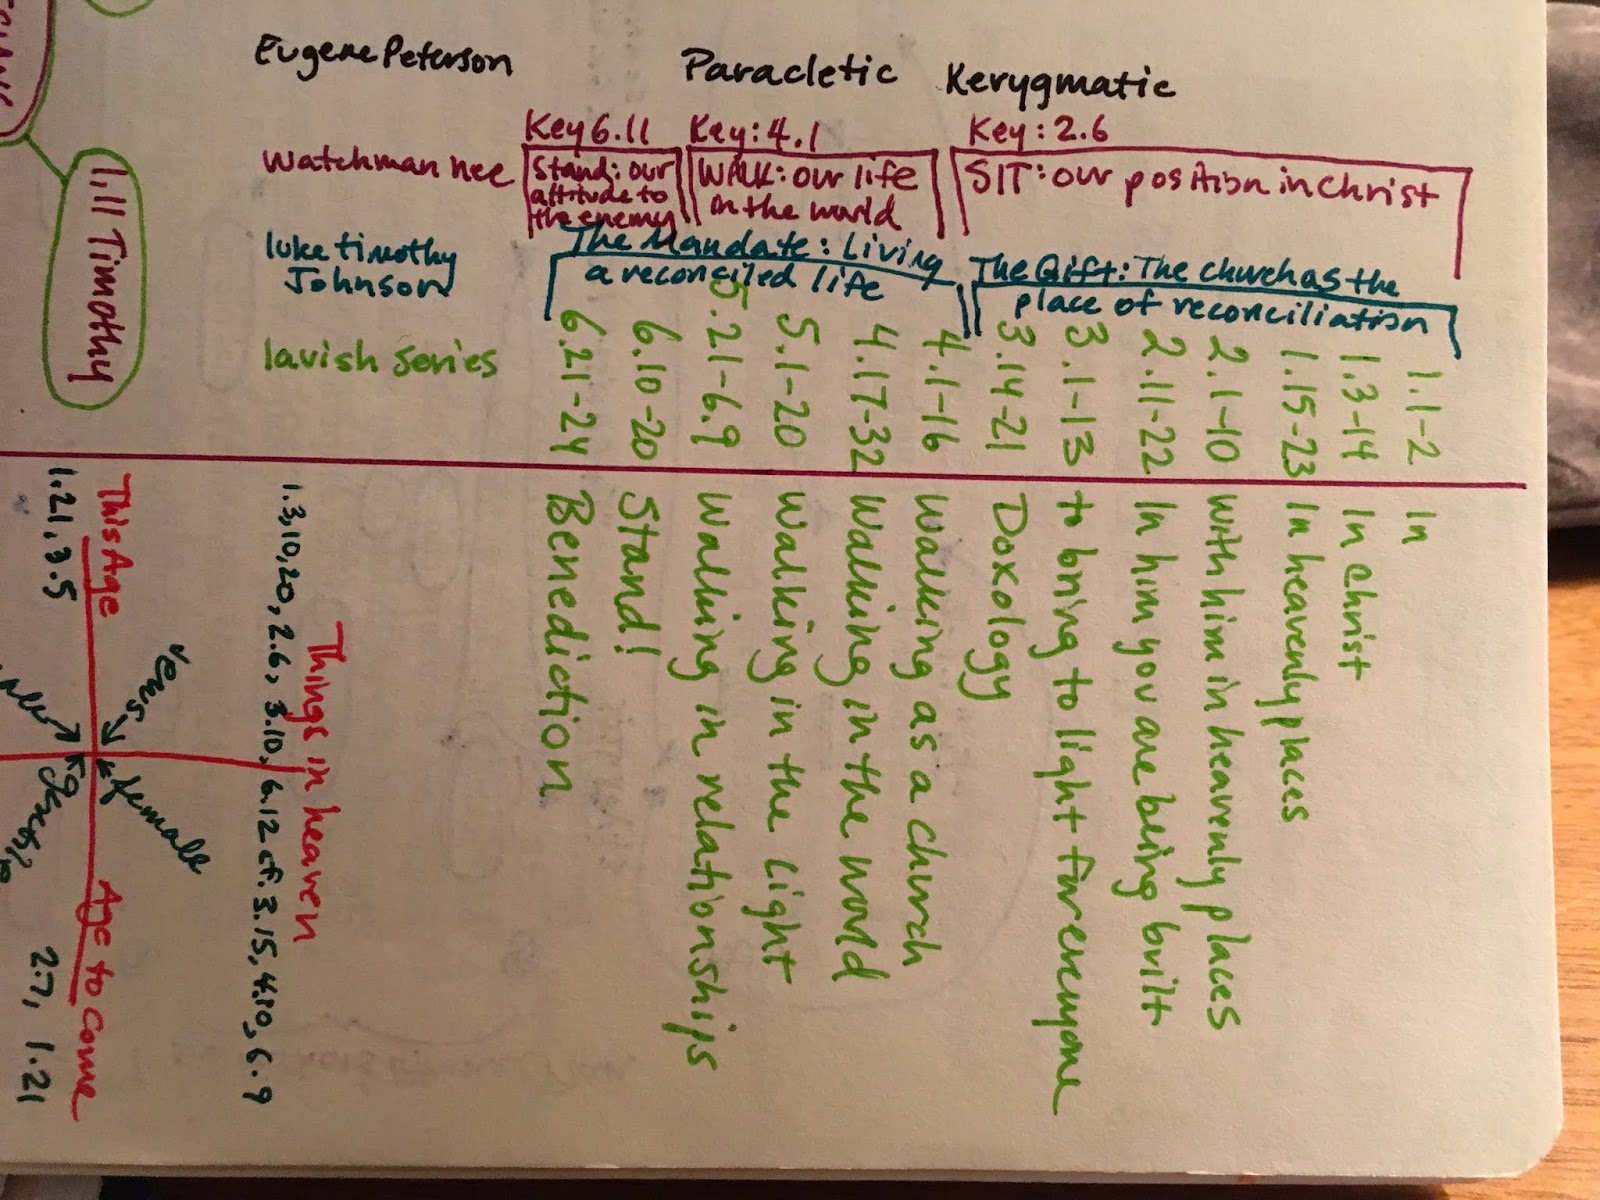 Eugene Peterson Paracletic Kerygmatic
Key 6.11 Key: 4.1 Key: 2.6
Watchman nee
Stand: our
attitude to
the enemy
WALK: our life
in the world
SIT: our position in Christ
luke timothy
Johnson
The Mandate: Living
a reconciled life
The Gift: The church as the
place of reconciliation
lavish series
1.1-2 In
1.3-14 In Christ
1.15-23 In heavenly places
2.1-10 with him in heavenly places
2.11-22 In him you are being built
3.1-13 to bring to light for everyone
3.14-21 Doxology
4.1-16 walking as a church
4.17-32 walking in the world
5.1-20 walking in the light
5.21-6.9 walking in relationships
6.10-20 Stand!
6.21-24 Benediction
Things in heaven
1.3,10,20, 2.6, 3.10, 6.12 cf. 3.15, 4.10, 6.9
1.11 Timothy
This Age
1.21, 3.5
Age to Come
2.7, 1.21
Jews
female